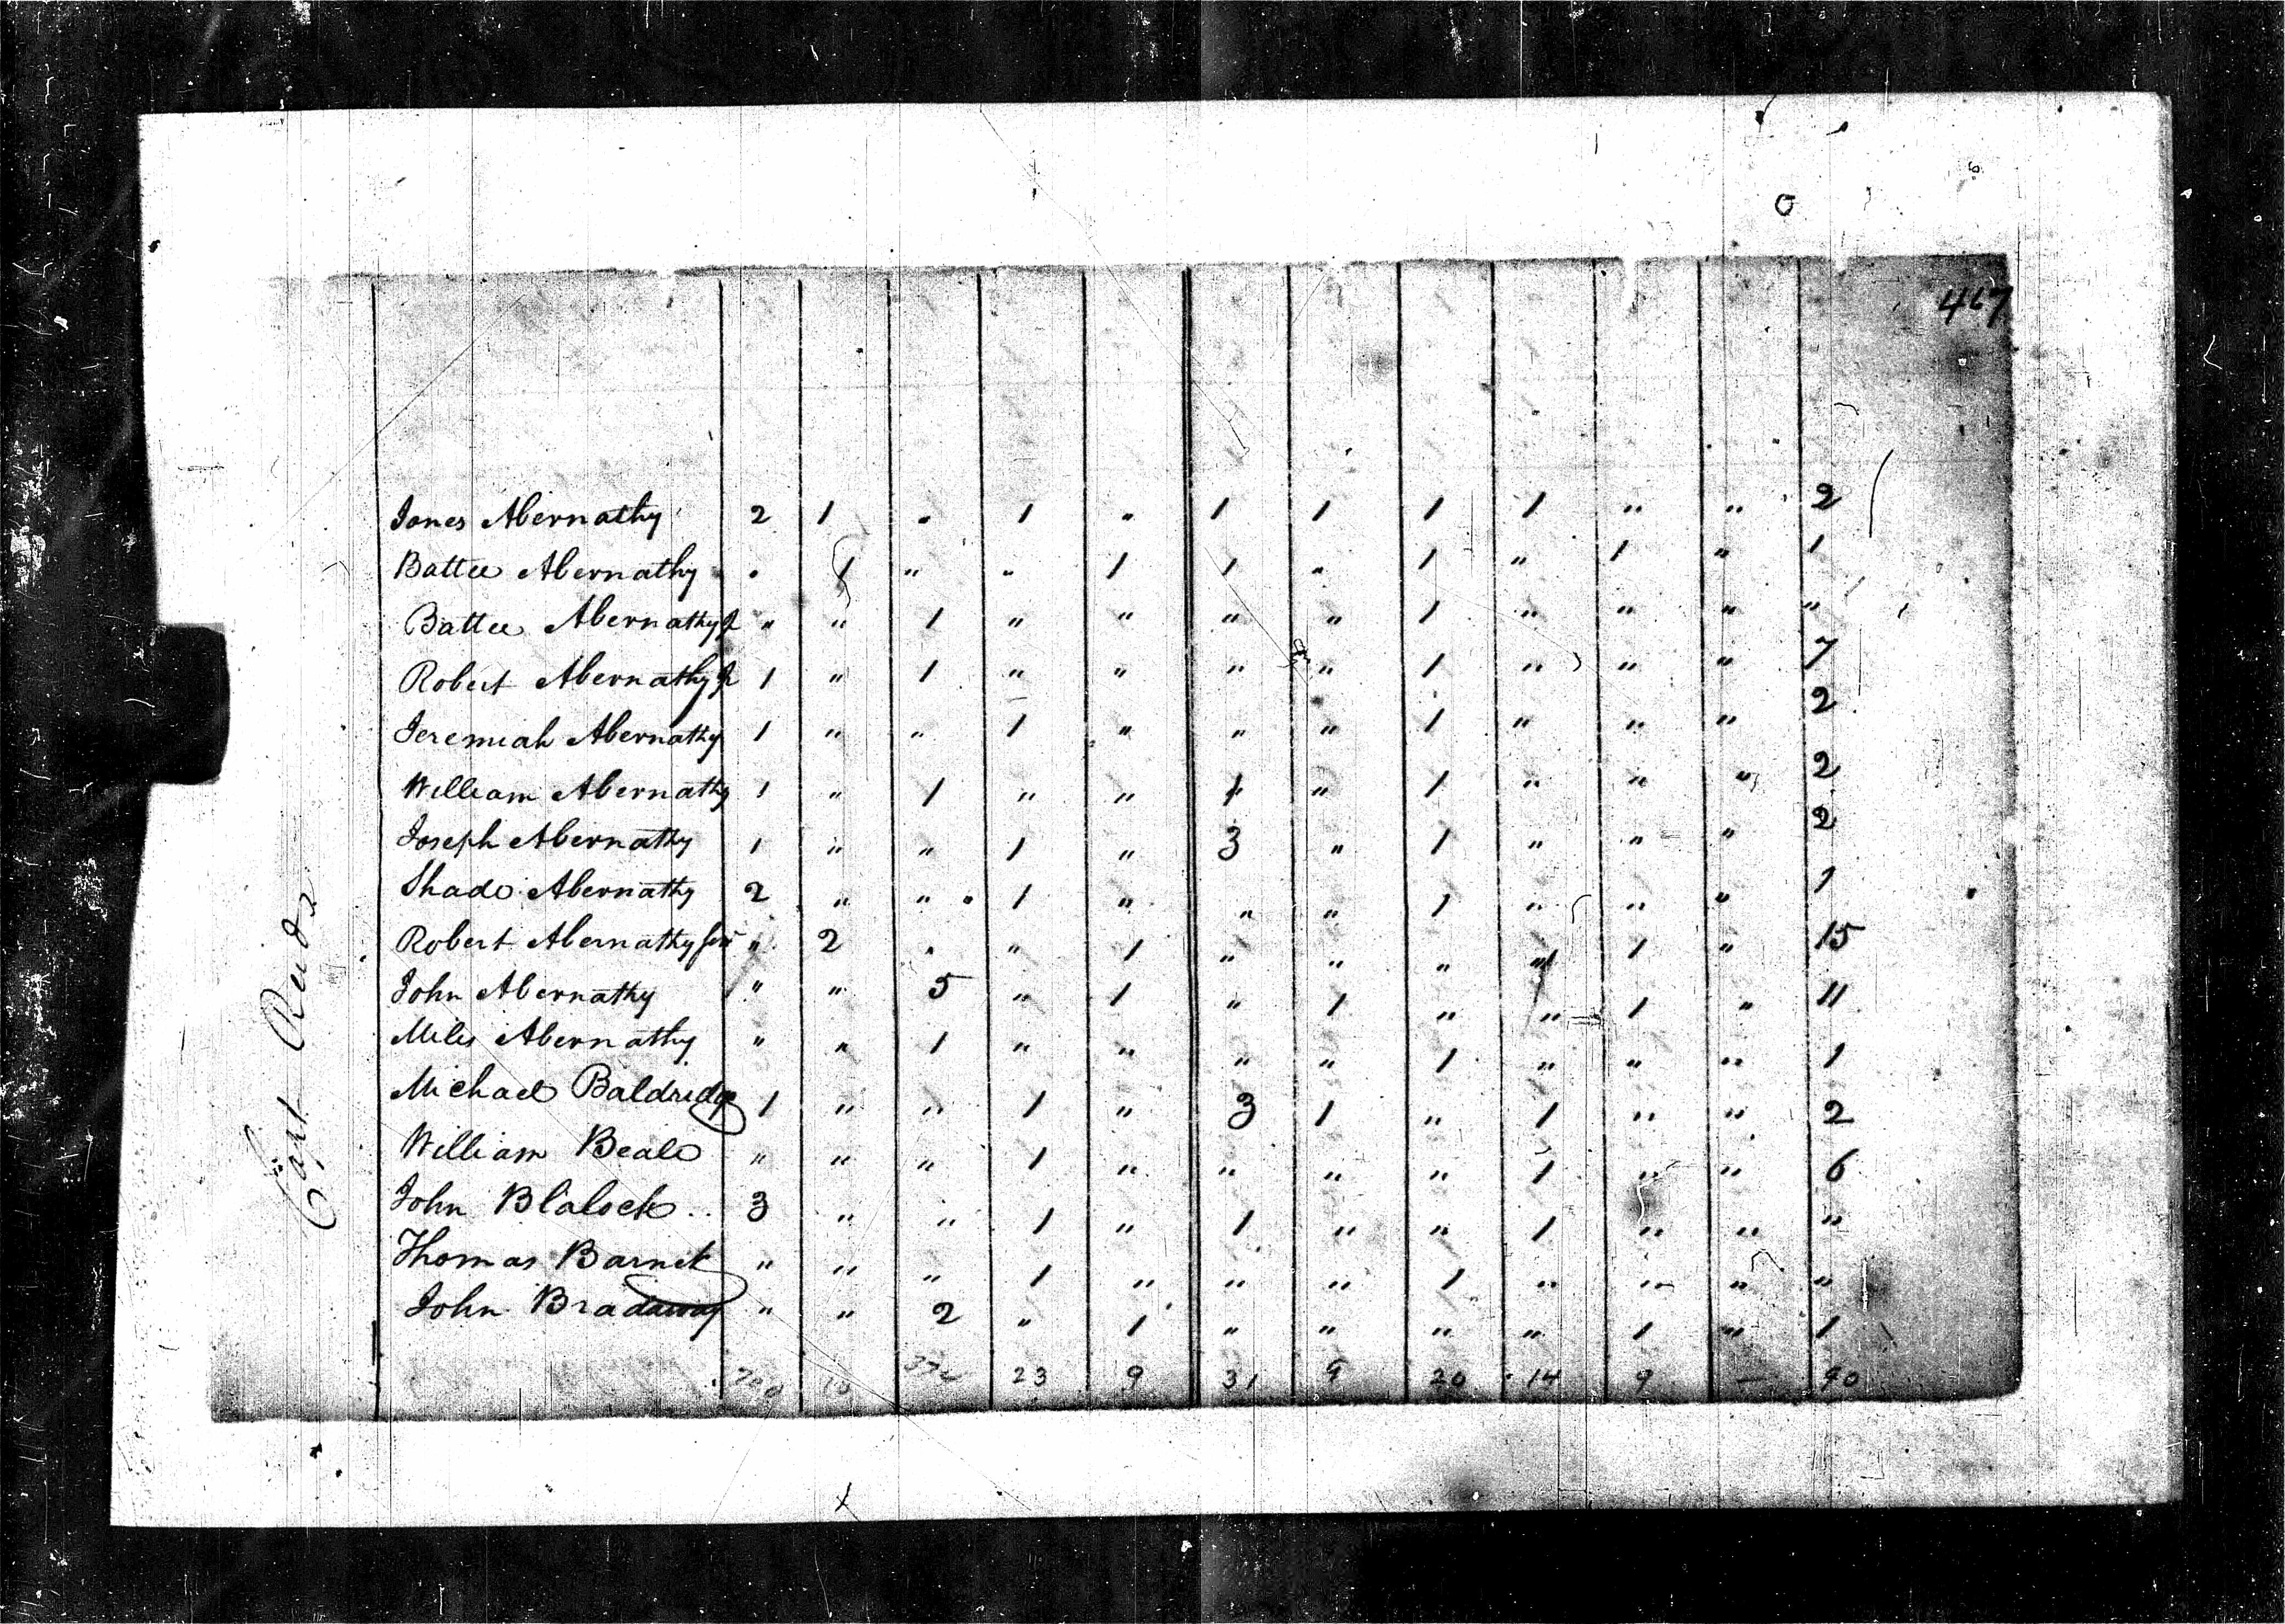 467
Jones Abernathy 2 1 " 1 " 1 1 1 1 " " 2
Battee Abernathy " 1 " " 1 1 " 1 " 1 " 1
Battee Abernathy Jr " " 1 " " " " 1 " " " "
Robert Abernathy Jr 1 " 1 " " " " 1 " " " 7
Jeremiah Abernathy 1 " " 1 " " " 1 " " " 2
William Abernathy 1 " 1 " " 1 " 1 " " " 2
Joseph Abernathy 1 " " 1 " 3 " 1 " " " 2
Shade Abernathy 2 " " 1 " " " 1 " " " 1
Robert Abernathy " 2 " " 1 " " " 1 " 15
John Abernathy " " 5 " 1 " 1 " " 1 " 11
Miles Abernathy " " 1 " " " " 1 " " " 1
Michael Baldridge 1 " " 1 " 3 1 " 1 " " 2
William Beale " " " 1 " " " " 1 " " 6
John Blalock 3 " " 1 " 1 " " 1 " " "
Thomas Barnet " " " 1 " " " 1 " " " "
John Bradaway " " 2 " 1 " " " " 1 " 1
23 9 31 9 20 14 9 — 90
Capt Reids